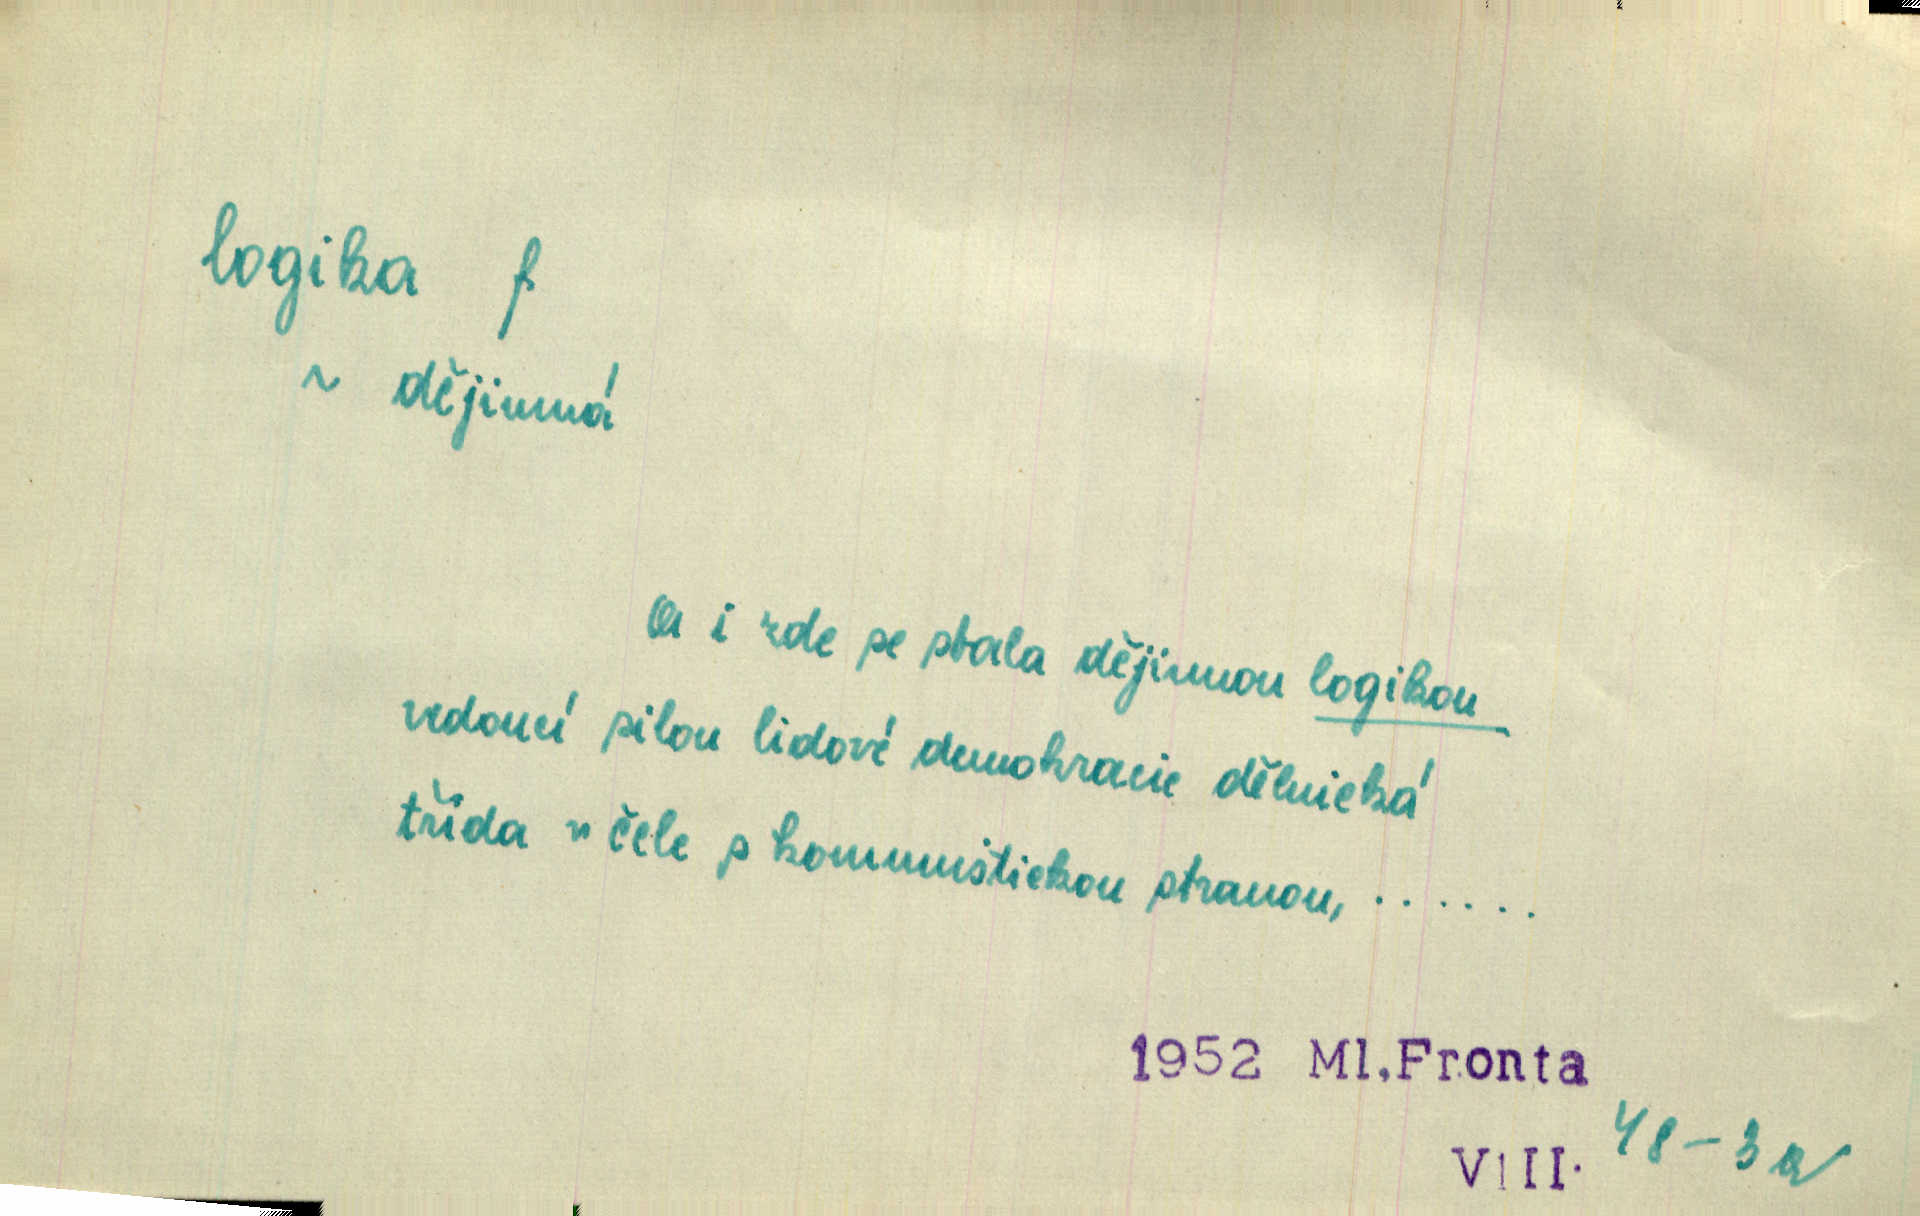 logika f
~ dějinná
a i zde se stala dějinnou logikou
vedoucí silou lidové demokracie dělnická
třída v čele s komunistickou stranou, ......
1952 Ml.Fronta
VIII. 48-3a